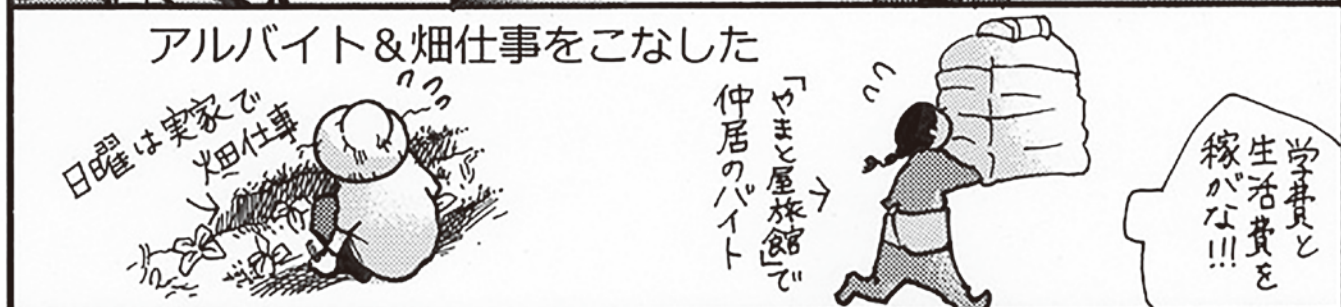 アルバイト&畑仕事をこなした
学費と
生活費を
稼がな!!!
「やまと屋旅館」で
仲居のバイト
日曜は実家で
畑仕事